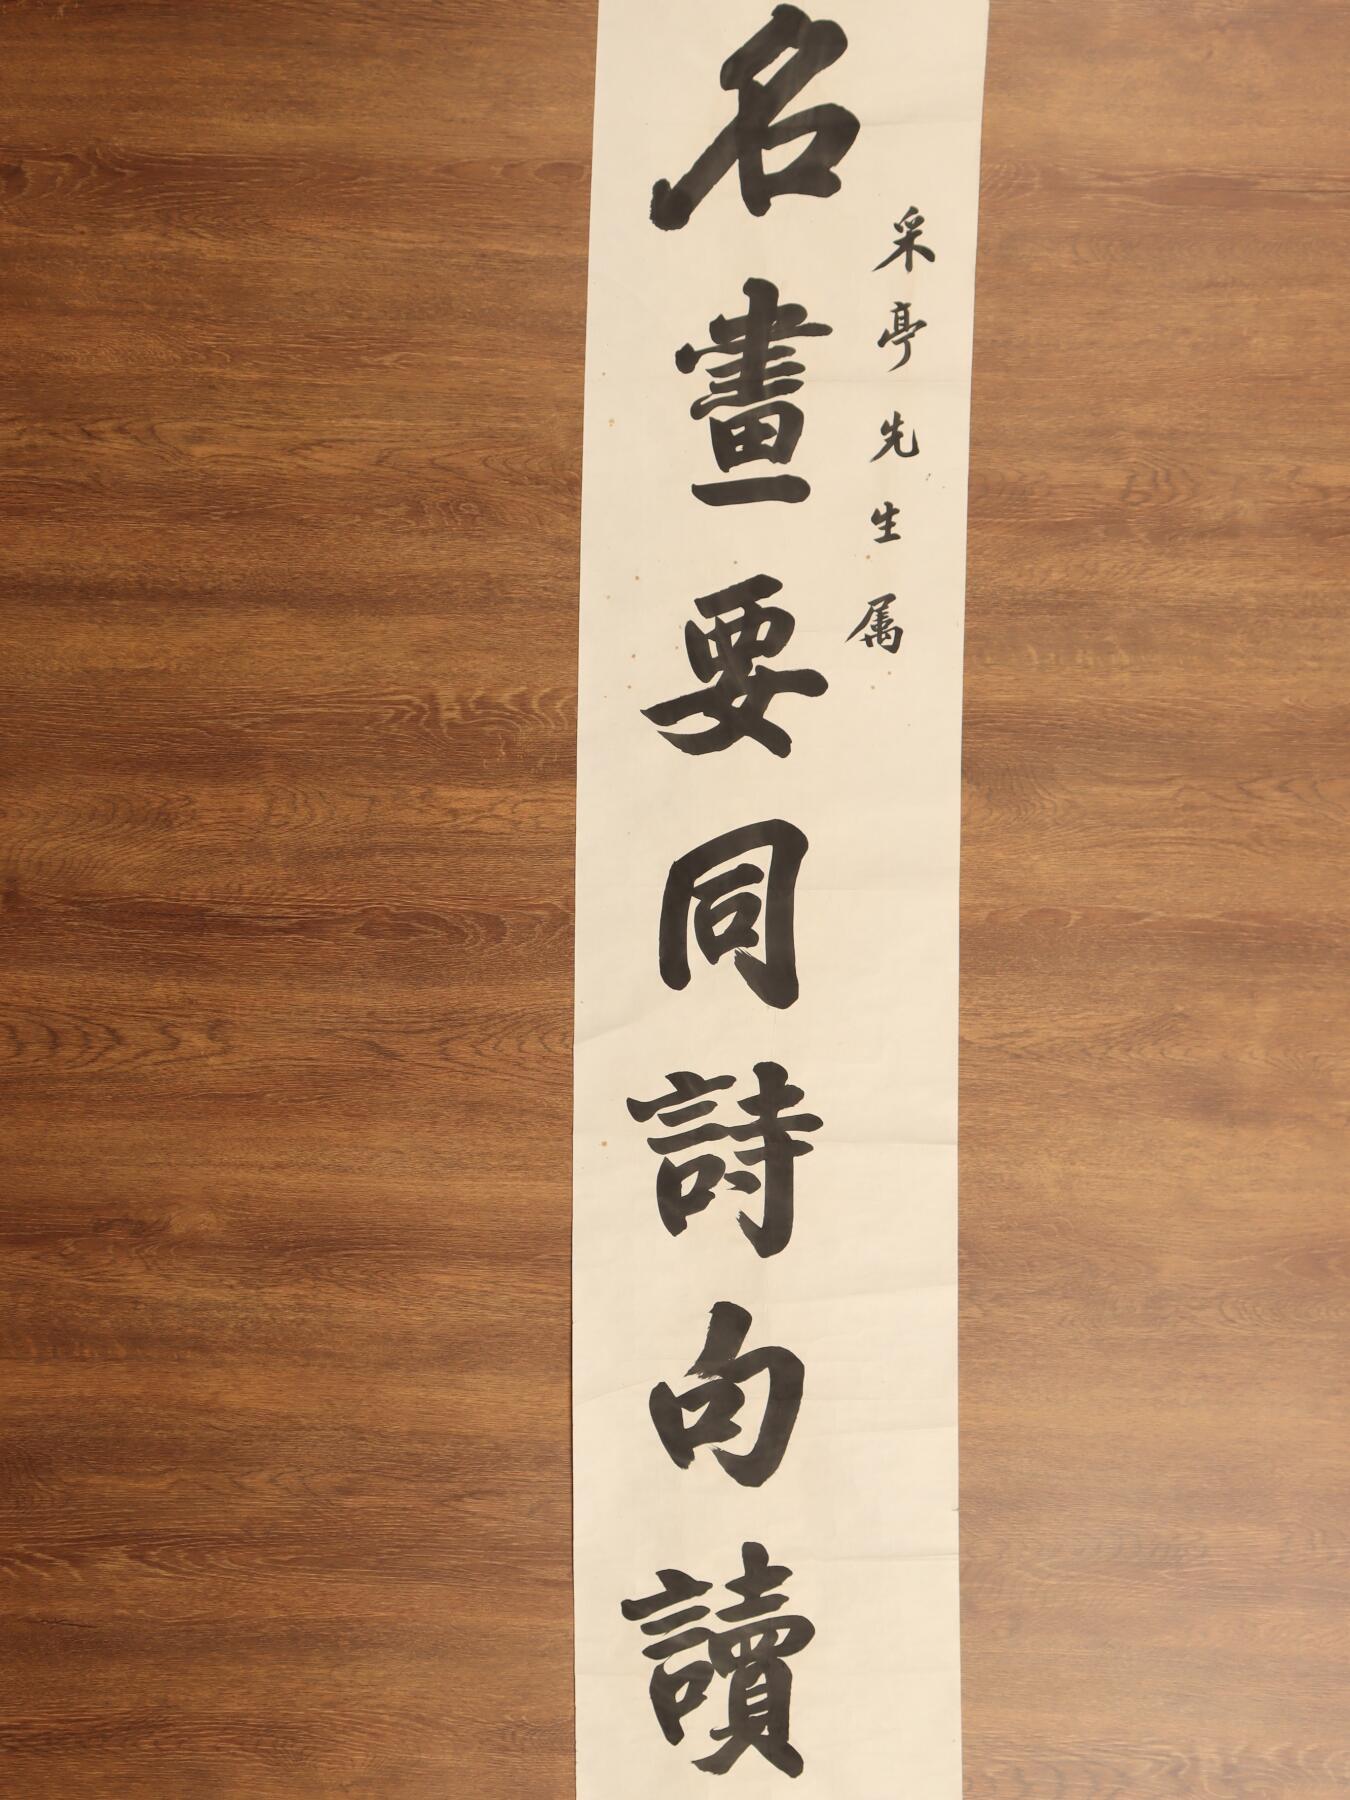 采亭先生属
名畫要同詩句讀